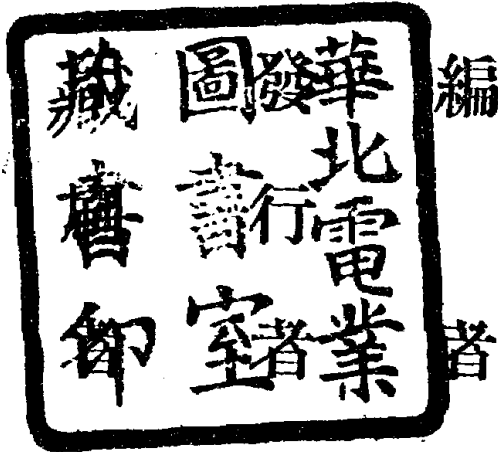 編者
華北電業
發行者
圖書室
藏書印